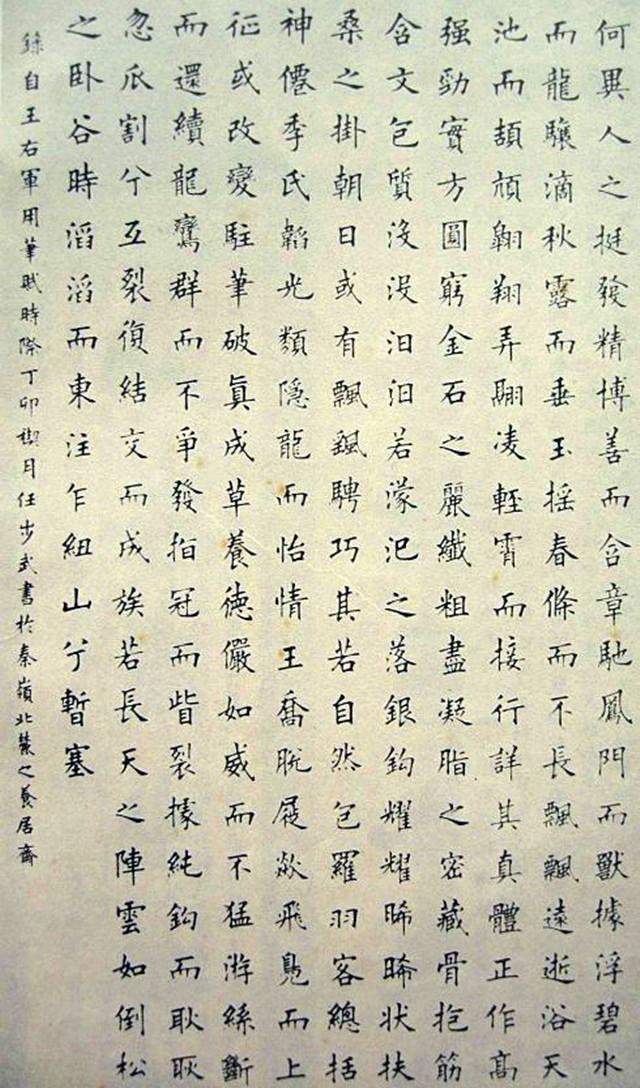 何異人之挺發精博善而含章馳鳳門而獸據浮碧水
而龍驤滴秋露而垂玉搖春條而不長飄飄遠逝浴天
池而頡頏翱翔弄翮凌輕霄而接行詳其真體正作高
强勁實方圓窮金石之麗纖粗盡凝脂之密藏骨抱筋
含文包質沒沒汩汩若濛汜之落銀鈎耀耀晞晞狀扶
桑之掛朝日或有飄颻聘巧其若自然包羅羽客總括
神僊季氏韜光類隱龍而怡情王喬脫屣欻飛鳧而上
征或改變駐筆破真成草養德儼如威而不猛游絲斷
而還續龍鸞群而不爭發指冠而眥裂據純鈎而耿耿
忽瓜割兮互裂復結交而成族若長天之陣雲如倒松
之卧谷時滔滔而東注乍紐山兮暫塞
錄自王右軍用筆賦時際丁卯月任步武書於秦嶺北麓之養居齋